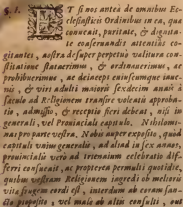 §. 1. ET si nos antea de omnibus Ec-
clesiasticis Ordinibus in ea, qua
conuenit, puritate, & dignita-
te conseruandis attentius co-
gitantes, nostra desuper perpetuò valitura con-
stitutione statuerimus, & ordinauerimus, ac
prohibuerimus, ac deinceps cuiuscumque iuue-
nis, & viri adulti maioris sexdecim annis è
sæculo ad Religionem transire volentis approba-
tio, admissio, & receptio fieri debeat, nisi in
generali, vel Prouinciali capitulo, Nihilomi-
nus pro parte vestra, Nobis nuper exposito, quòd
capitula vniuer generalia, ad aliud in sex annos,
prouincialia verò ad triennium celebrari dif-
ferri consueuit, ac propterea permulti quotidie,
quibus vestram Religionem ingredi ob melioris
vitæ frugem cordi est, interdum ab eorum san-
cto proposito, vel malo ab altis consulti, aut